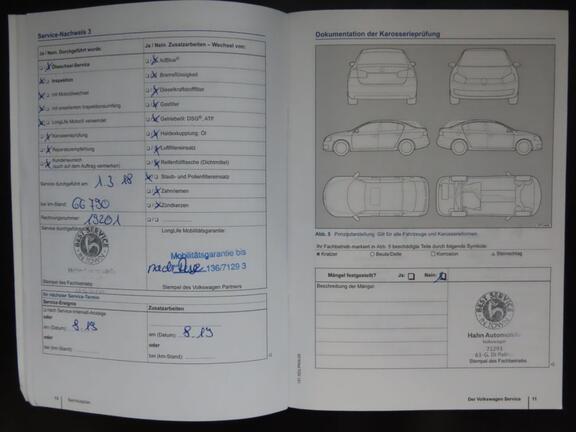 Service-Nachweis 3
Ja / Nein. Durchgeführt wurde:
Ja / Nein. Zusatzarbeiten – Wechsel von:
Ölwechsel-Service
AdBlue®
Inspektion
Bremsflüssigkeit
mit Motorölwechsel
Dieselkraftstofffilter
mit erweitertem Inspektionsumfang
Gasfilter
LongLife Motoröl verwendet
Getriebeöl: DSG®, ATF
Karosserieprüfung
Haldexkupplung: Öl
Reparaturempfehlung
Luftfiltereinsatz
Kundenwunsch
(auch auf dem Auftrag vermerken)
Reifenfüllflasche (Dichtmittel)
Staub- und Pollenfiltereinsatz
Zahnriemen
Zündkerzen
Service durchgeführt am: 1.3.18
bei km-Stand: 66790
Rechnungsnummer: 19201
Service durchgeführt
BEST SERVICE
Stempel des Fachbetriebs
LongLife Mobilitätsgarantie:
Mobilitätsgarantie bis
136/7129 3
Stempel des Volkswagen Partners
Ihr nächster Service-Termin
Service-Ereignis
Zusatzarbeiten
nach Service-Intervall-Anzeige
oder
am (Datum): 8.19
am (Datum): 8.19
oder
oder
bei (km-Stand):
bei (km-Stand):
10 Serviceplan
Dokumentation der Karosserieprüfung
Abb. 5 Prinzipdarstellung: Gilt für alle Fahrzeuge und Karosserieformen.
Ihr Fachbetrieb markiert in Abb. 5 beschädigte Teile durch folgende Symbole:
Kratzer
Beule/Delle
Korrosion
Steinschlag
Mängel festgestellt?
Ja:
Nein:
Beschreibung der Mängel:
BEST SERVICE
Hahn Automobile
Volkswagen
71293
Stempel des Fachbetriebs
Der Volkswagen Service 11